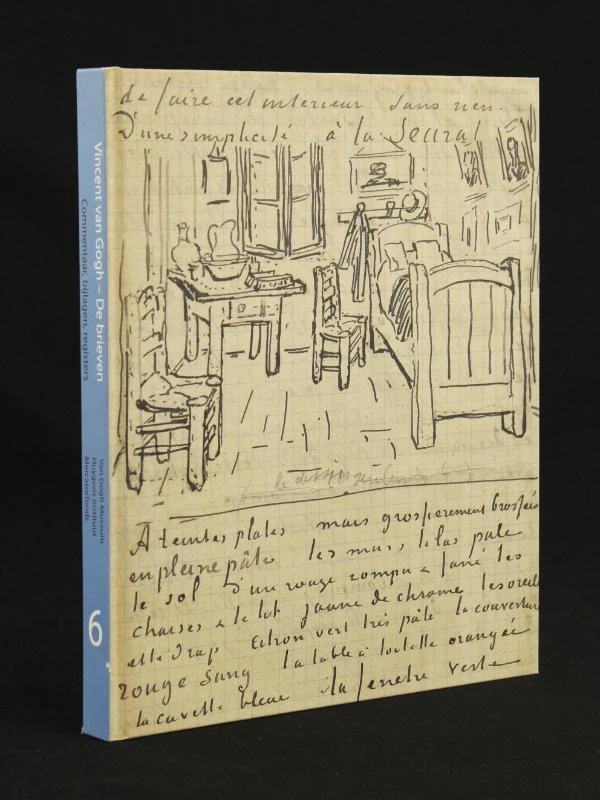 Vincent van Gogh – De brieven
Commentaar, bijlagen, registers
Van Gogh Museum
Huygens Instituut
Mercatorfonds
6
de faire cet interieur sans rien.
D'une simplicité à la Seurat
A teintes plates mais grossierement brossées
en pleine pâte les murs lilas pale
le sol d'un rouge rompu & fané les
chaises & le lit jaune de chrome les oreill
et le drap citron vert très pâle la couverture
rouge sang la table à toilette orangée
la cuvette bleue la fenetre verte